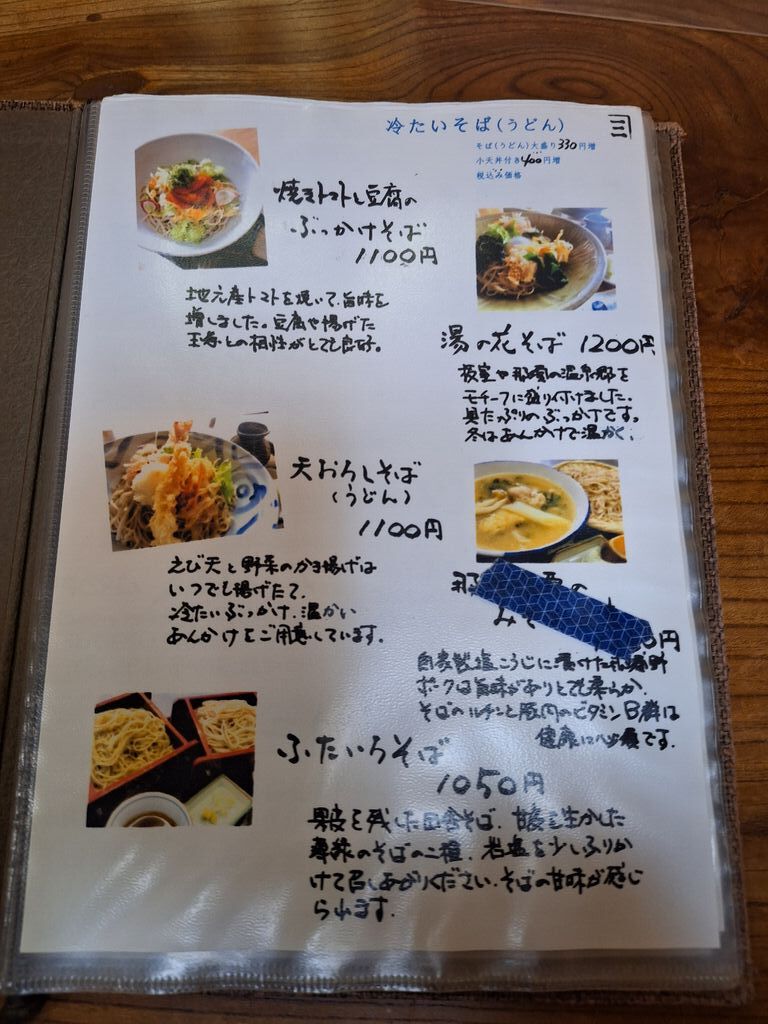 冷たいそば(うどん)
そば(うどん)大盛り330円増
小天丼付き400円増
税込み価格
焼きトマトと豆腐の
ぶっかけそば
1100円
地元産トマトを焼いて、旨味を
増しました。豆腐や揚げた
玉寿との相性がとても良好。
湯の花そば 1200円
板室や那須の温泉郷を
モチーフに盛り付けました。
具たっぷりのぶっかけです。
冬はあんかけで温かく。
天おろしそば
(うどん)
1100円
えび天と野菜のかき揚げは
いつでも揚げたて。
冷たいぶっかけ、温かい
あんかけをご用意しています。
那
みそ
0円
自家製塩こうじに漬けた那須野
ポークは旨味がありとても柔らか。
そばのルチンと豚肉のビタミンB群は
健康に必須です。
ふたいろそば
1050円
果皮を残した田舎そば、甘皮を生かした
薄緑のそばの二種。岩塩を少しふりか
けて召しあがりください。そばの甘味が感じ
られます。